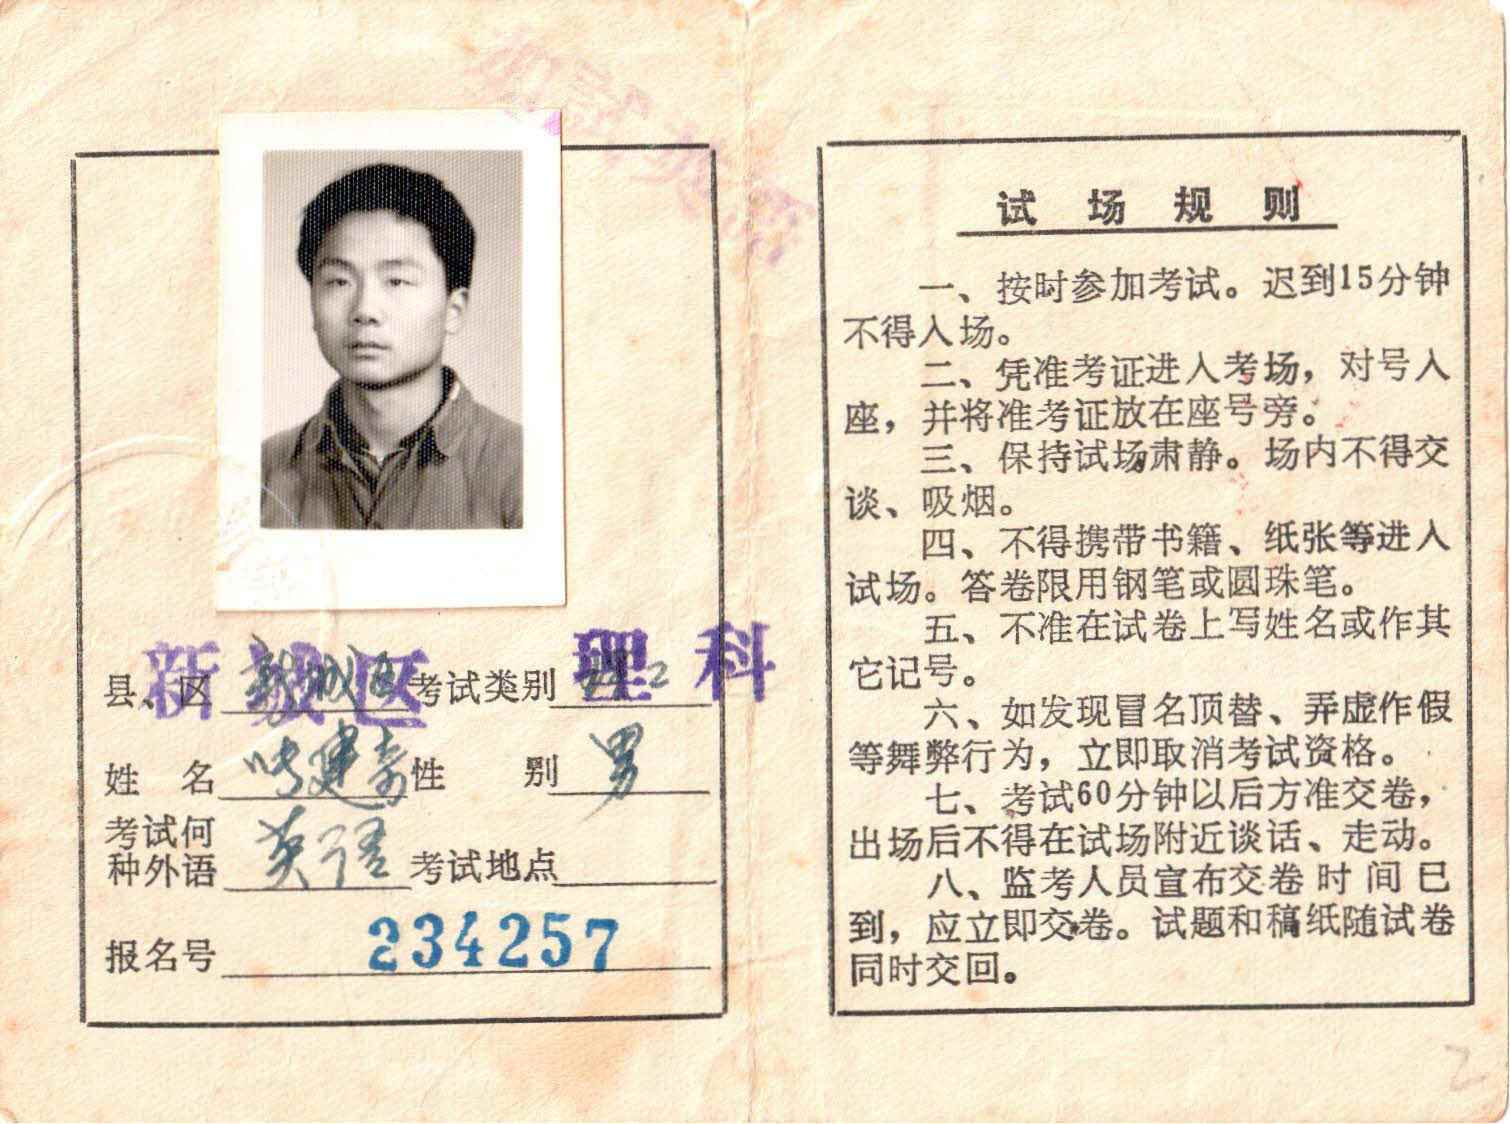 新城区
理科
县、区 新城区 考试类别 理工
姓 名 建 性 别 男
考试何种外语 英语 考试地点
报名号 234257
试 场 规 则
一、按时参加考试。迟到15分钟
不得入场。
二、凭准考证进入考场，对号入
座，并将准考证放在座号旁。
三、保持试场肃静。场内不得交
谈、吸烟。
四、不得携带书籍、纸张等进入
试场。答卷限用钢笔或圆珠笔。
五、不准在试卷上写姓名或作其
它记号。
六、如发现冒名顶替、弄虚作假
等舞弊行为，立即取消考试资格。
七、考试60分钟以后方准交卷，
出场后不得在试场附近谈话、走动。
八、监考人员宣布交卷时间已
到，应立即交卷。试题和稿纸随试卷
同时交回。